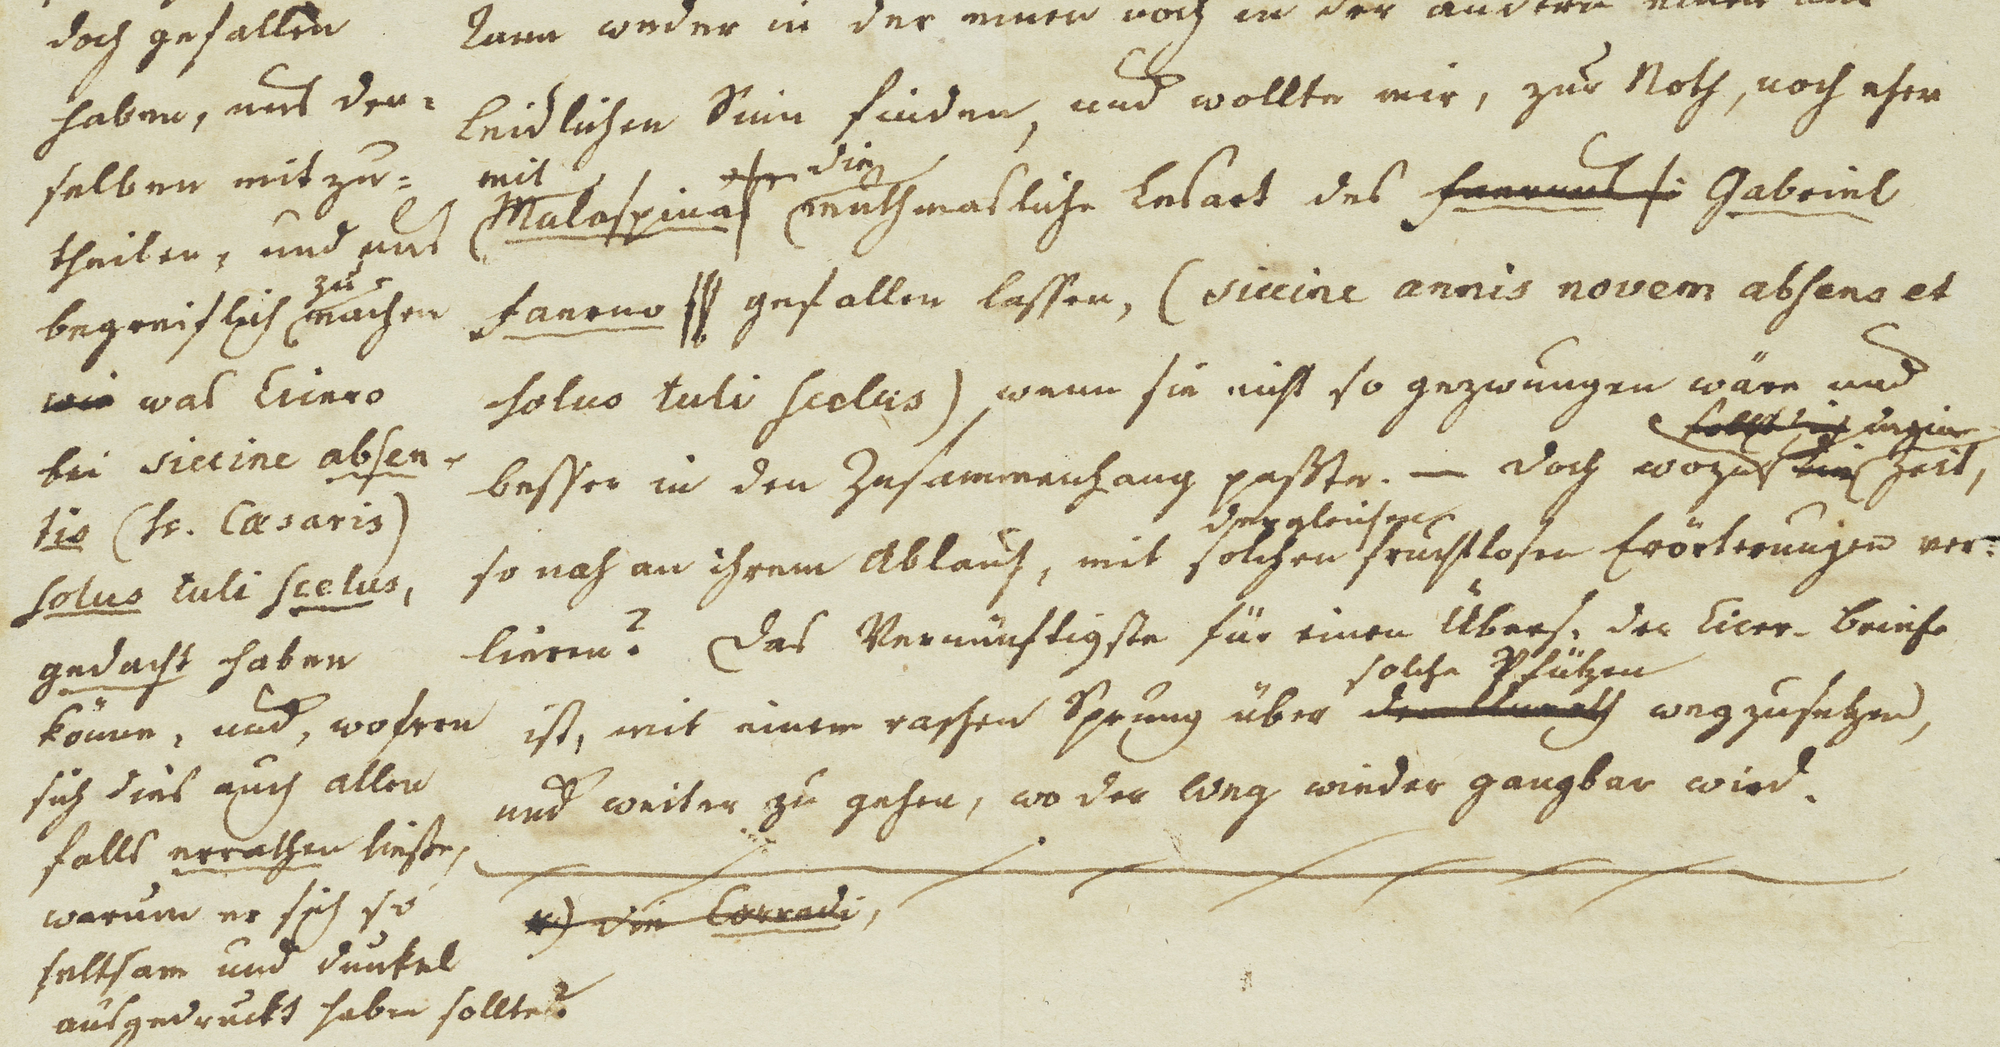 doch gefallen
haben, uns den-
selben mitzu-
theilen, und uns
begreiflich zu machen
wie was Cicero
bei siccine absen-
tis (sc. Cæsaris)
solus tuli scelus,
gedacht haben
könne, und, wofern
sich dies auch allen
falls errathen ließe,
warum er sich so
seltsam und dunkel
ausgedruckt haben sollte?
kann weder in der einen noch in der andern einen
leidlichen Sinn finden, und wollte mir, zur Noth, noch eher
mit die
Malaspina muthmasliche Lesart des Gabriel
Faerno gefallen lassen, (siccine annis novem absens et
solus tuli scelus) wenn sie nicht so gezwungen wäre und
besser in den Zusammenhang paßte. — Doch wozu die Zeit,
dergleichen
so nah an ihrem Ablauf, mit solchen fruchtlosen Erörterungen ver-
lieren? Das Vernünftigste für einen Übers. der Cicer. Briefe
solche Pfützen
ist, mit einem raschen Sprung über den Unrath wegzusetzen,
und weiter zu gehen, wo der Weg wieder gangbar wird.
*) die Corradi,